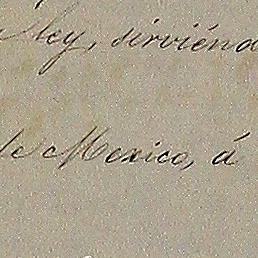 ley, sirviénd
de Mexico, á